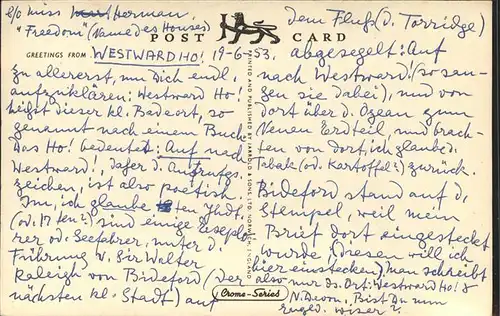 c/o Miss Herman,
"Freedom" (Name des Houses)
POST CARD
GREETINGS FROM WESTWARD HO! 19-6-53.
zu allererst, um Dich endl.
aufzuklären: Westward Ho!
heißt dieser kl. Badeort, so-
genannt nach einem Buch.
Das Ho! bedeutet: Auf nach
Westward!, daher d. Aufrufgs.
zeichen, ist also poetisch.
Im, ich glaube 16ten Jhdt.
(od. 17ten?) sind einige
rer od. Seefahrer, unter d.
Führung v. Sir Walter
Raleigh von Bideford (der
nächsten kl. Stadt) auf
PRINTED AND PUBLISHED BY JARROLD & SONS LTD. NORWICH, ENGLAND
dem Fluß (d. Torridge)
abgesegelt: Auf
nach Westward! (so san-
gen sie dabei), und von
dort über d. Ozean zum
Neuen Erdteil, und brach-
ten von dort, ich glaube d.
Tabak (od. Kartoffel?) zurück.
Bideford stand auf d.
Stempel, weil mein
Brief dort eingesteckt
wurde (diesen will ich
hier einstecken), man schreibt
also nur ds. Ort: Westward Ho! &
N. Devon. Bist Du nun
wiser?
Crome-Series